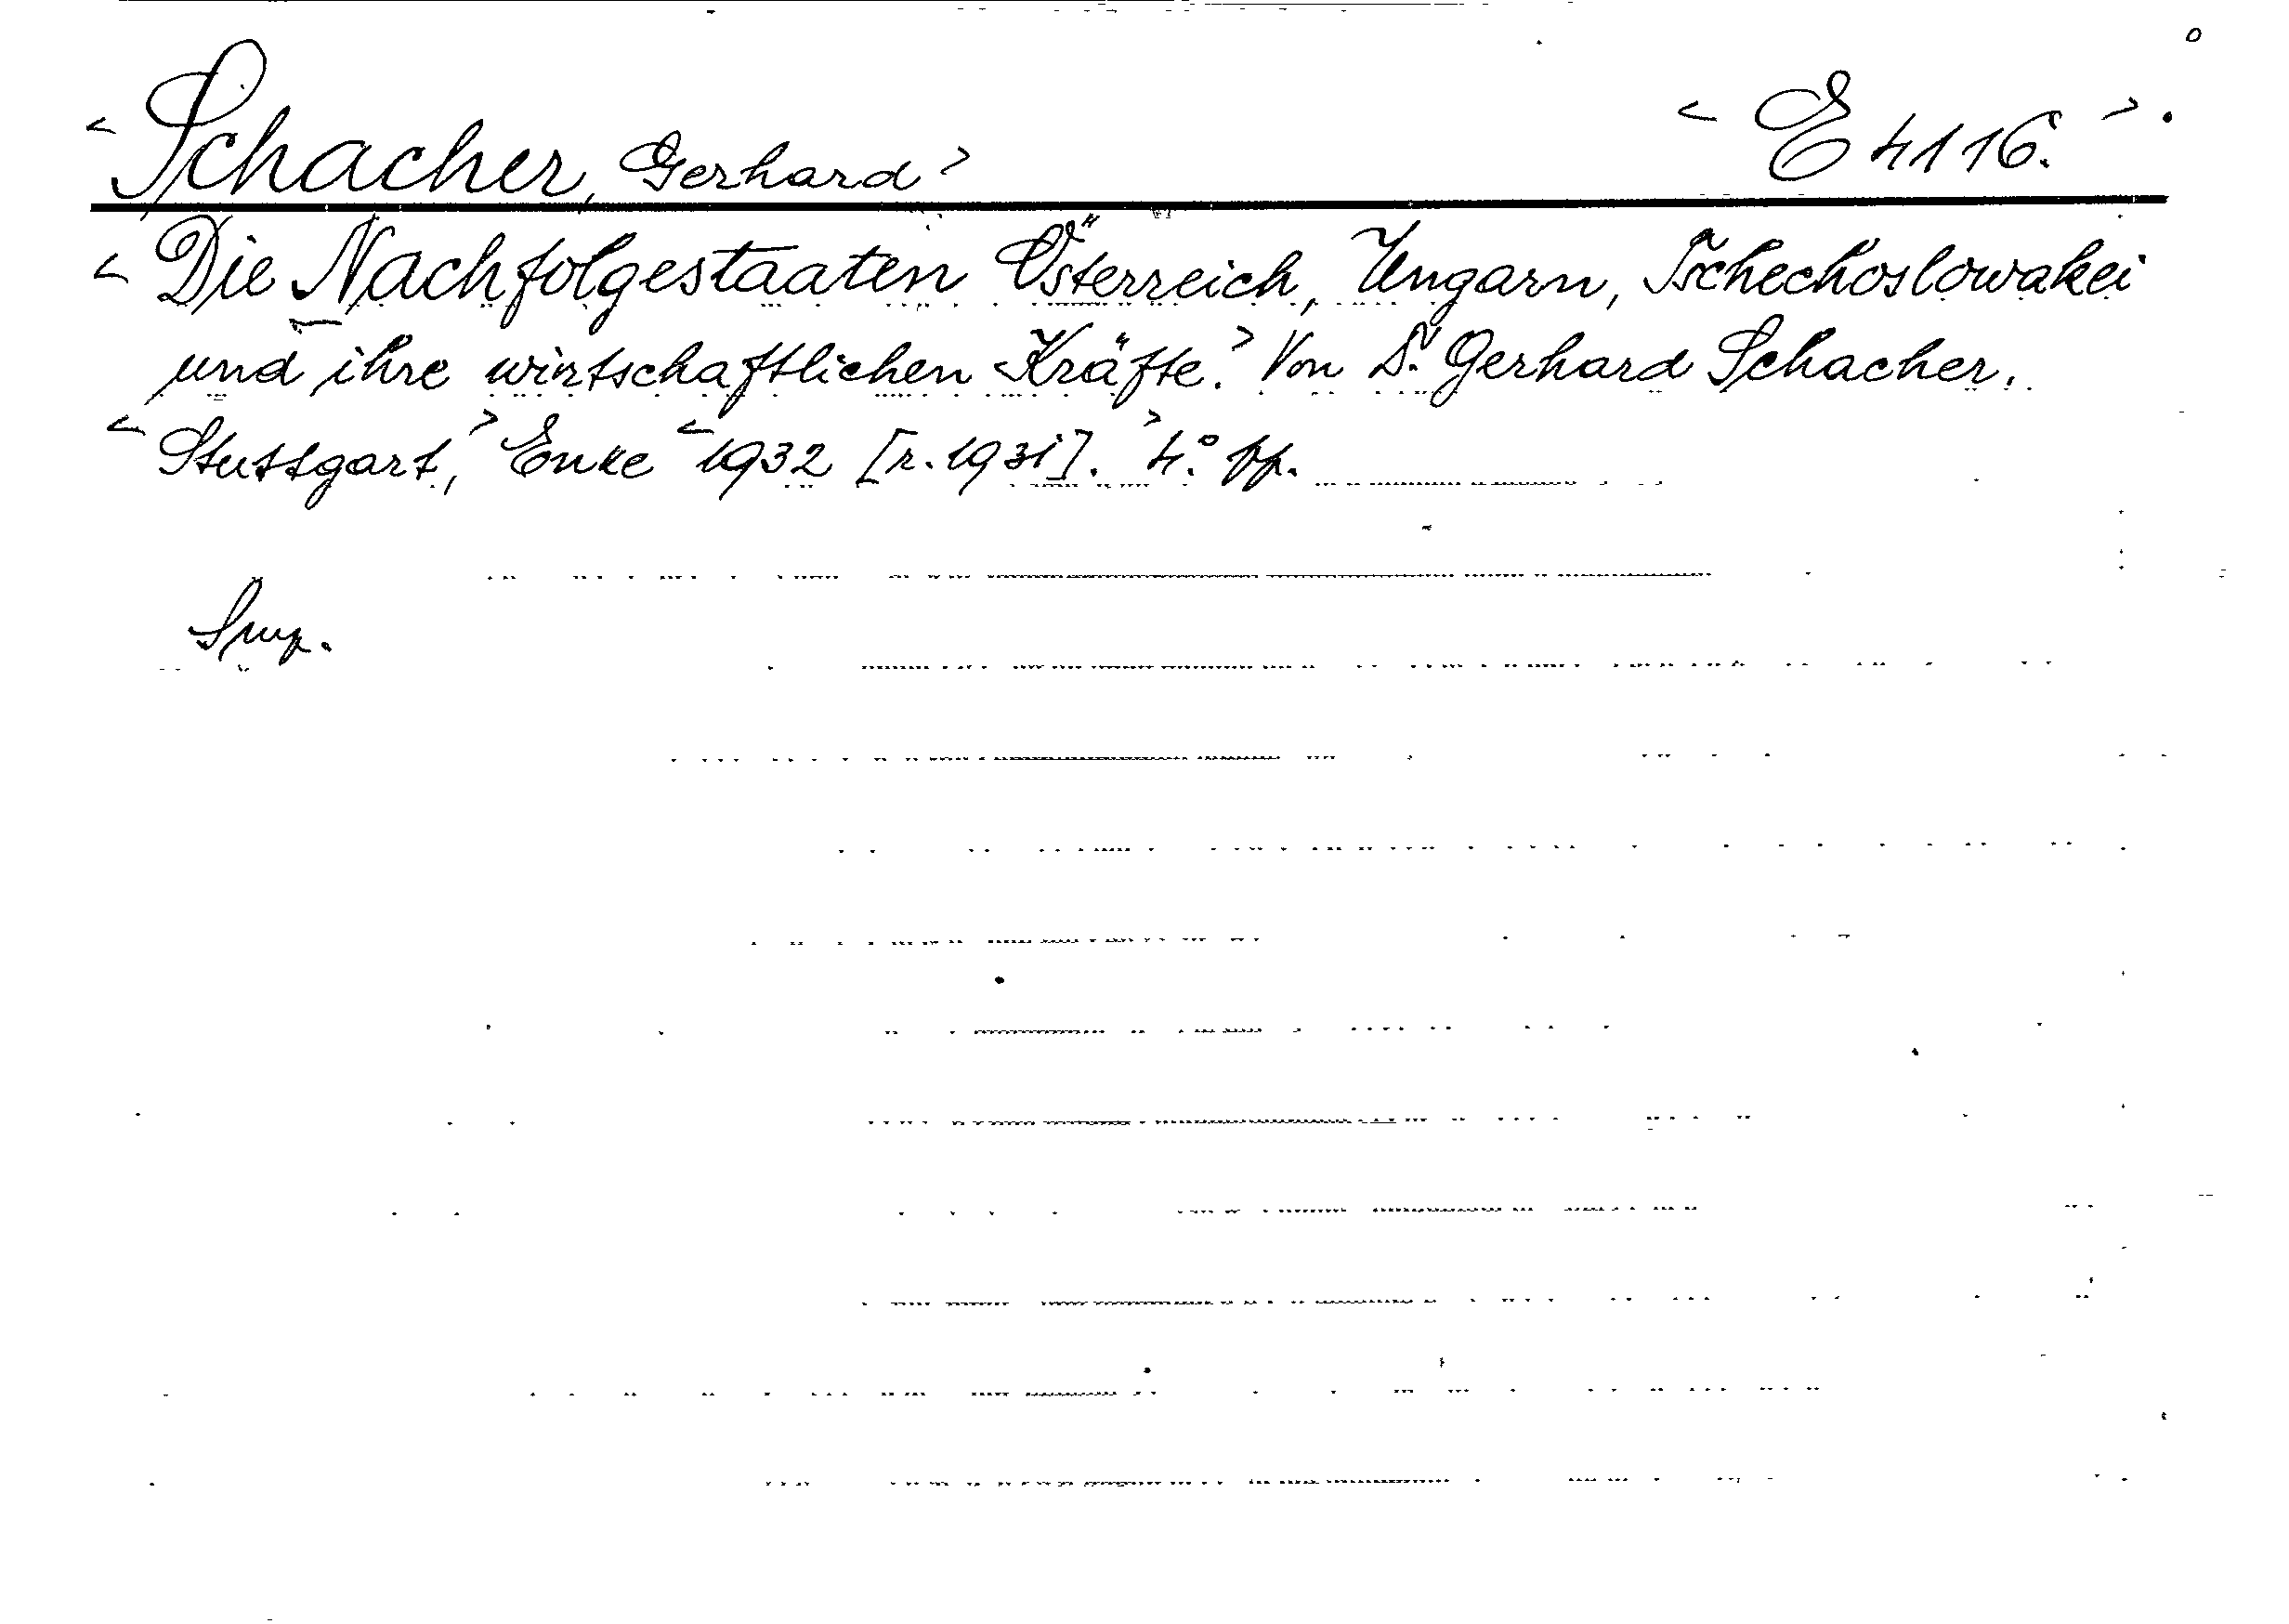 <Schacher, Gerhard> <E 4116.>.
<Die Nachfolgestaaten Österreich, Ungarn, Tschechoslowakei
und ihre wirtschaftlichen Kräfte.> Von Dr. Gerhard Schacher.
<Stuttgart,> Enke <1932 [r. 1931].> 4.° pp.